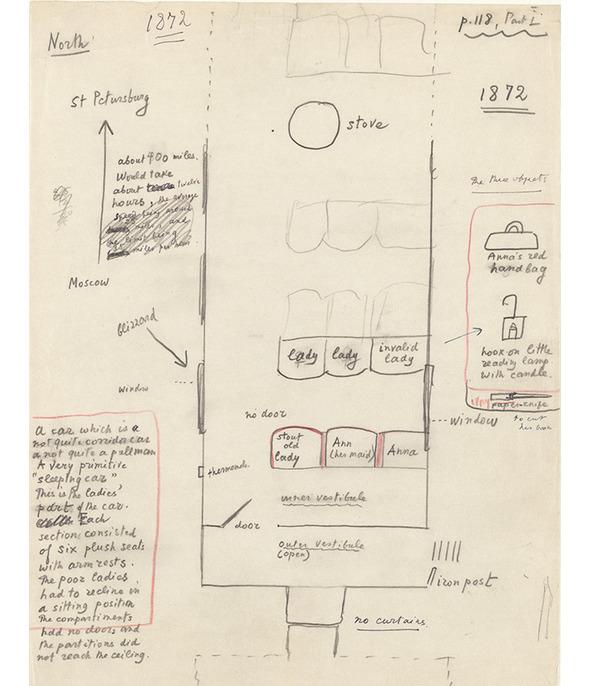 1872
p.118, Part I
North
1872
St Petersburg
stove
about 400 miles.
Would take
about twelve
hours, the average
the three objects
Moscow
Anna's red
handbag
Blizzard
hook-on little
reading lamp
with candle.
lady
lady
invalid
lady
window
paperknife
to cut
her book
no door
window
stout
old
lady
Ann
(her maid)
Anna
A car which is a
not quite corridor car
a not quite a pullman
A very primitive
"sleeping car"
This is the ladies'
part of the car.
Each
section consisted
of six plush seats
with arm rests.
The poor ladies
had to recline in
a sitting position
The compartiments
had no doors and
the partitions did
not reach the ceiling.
inner vestibule
door
outer vestibule
(open)
iron post
no curtains